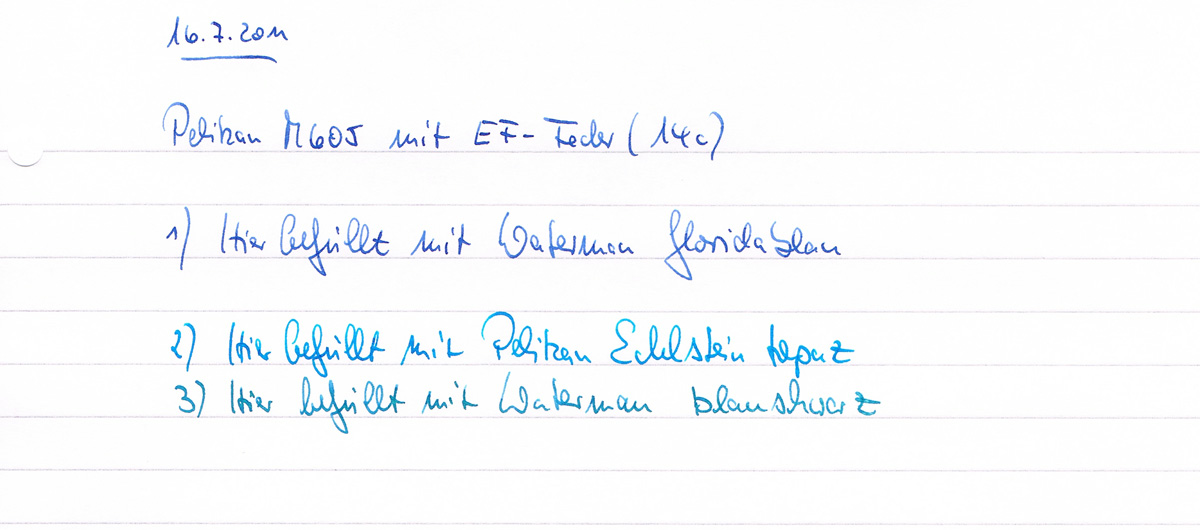 16.7.2011
Pelikan M605 mit EF-Feder (14c)
1) Hier befüllt mit Waterman floridablau
2) Hier befüllt mit Pelikan Edelstein topaz
3) Hier befüllt mit Waterman blauschwarz